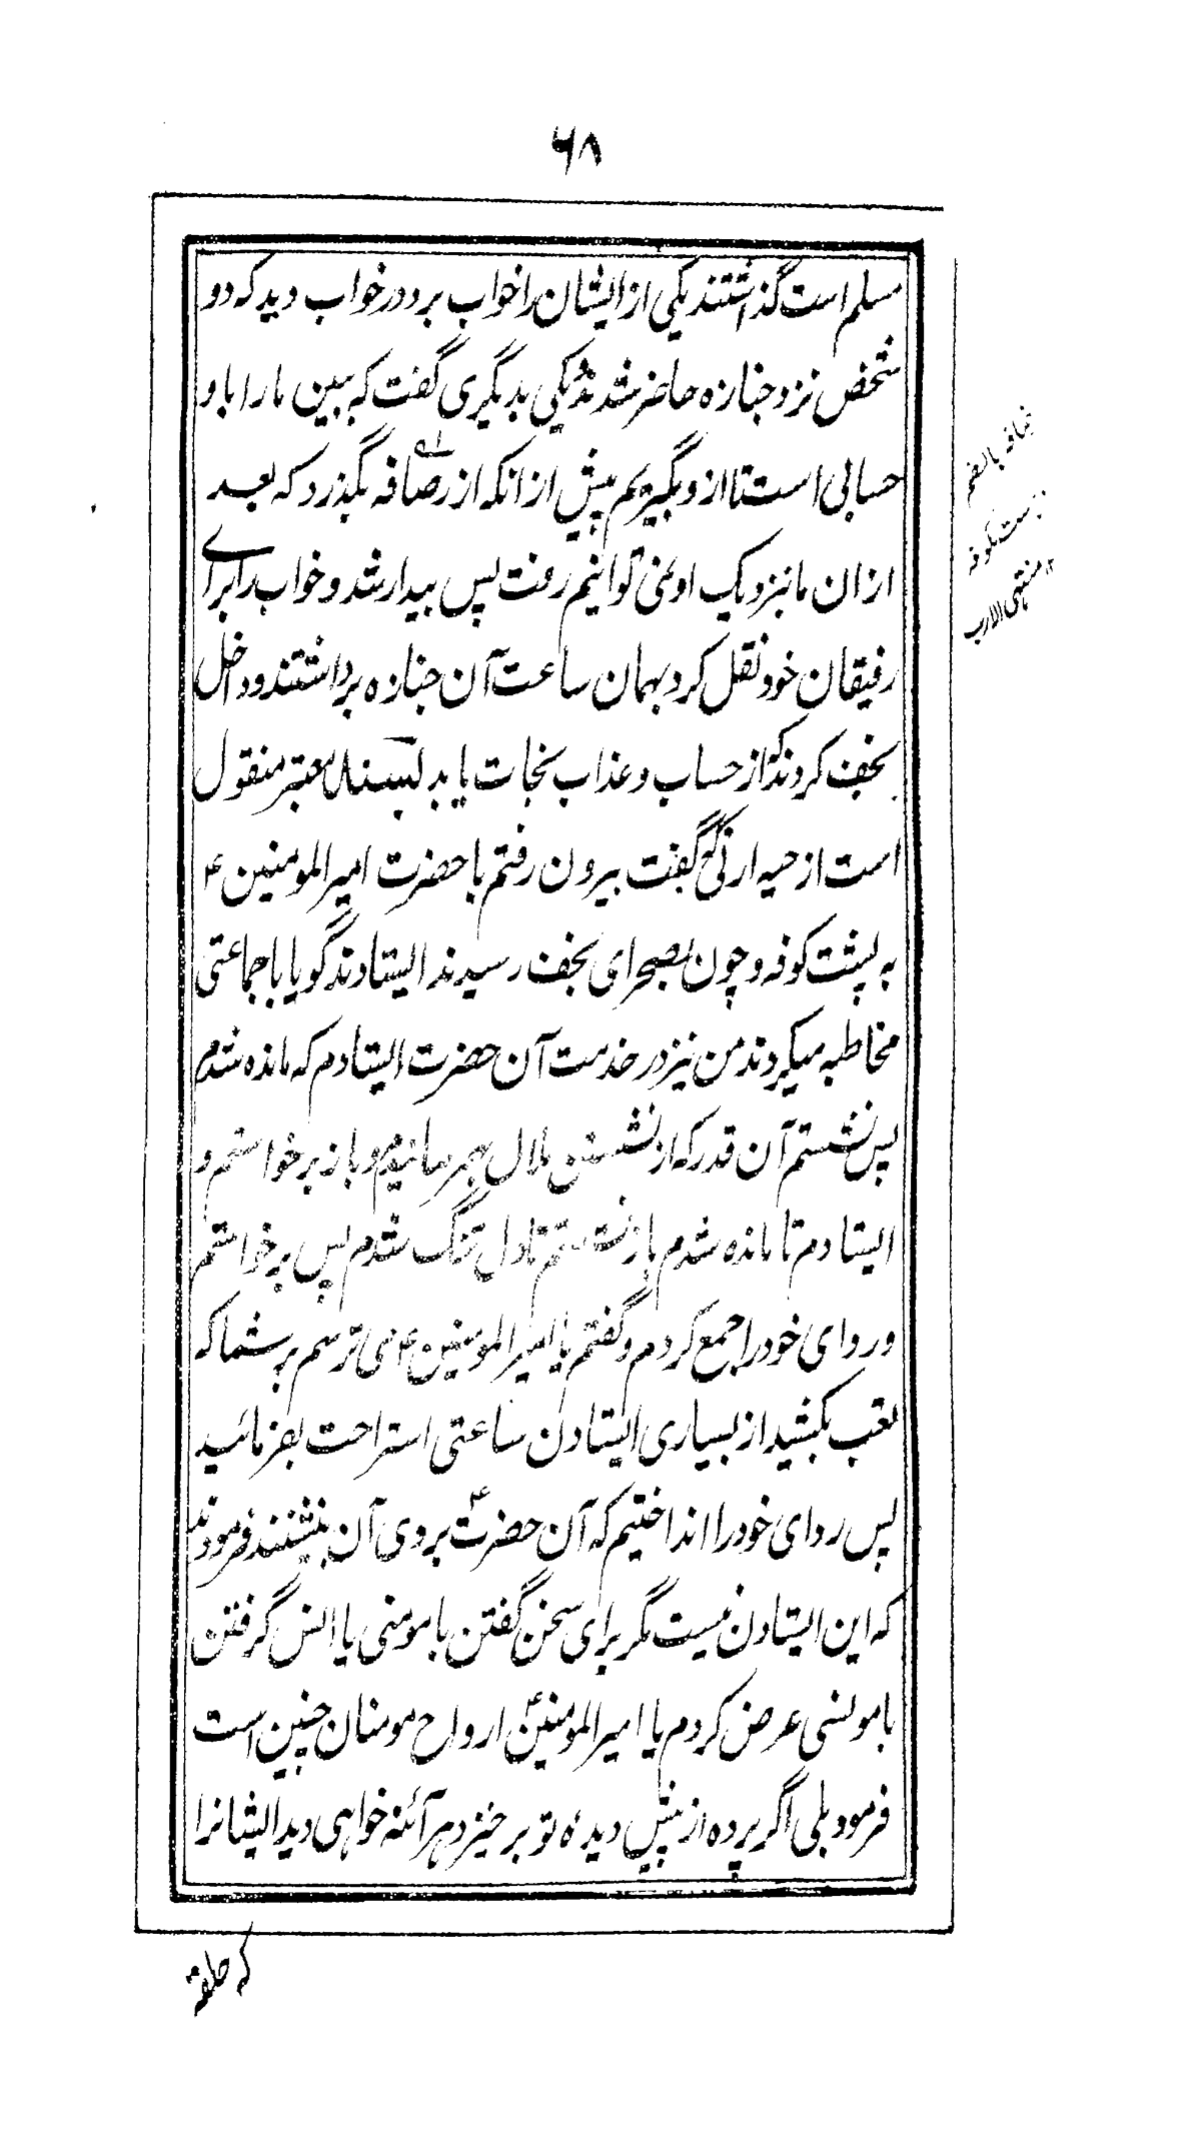 ۶۸
مسلم است گذاشتند یکی از ایشان را خواب برد در خواب دید که دو
شخص نزد جنازه حاضر شدند یکی بدیگری گفت که ببین ما را با او
حسابی است تا ازو بگیریم پیش از انکه از رصافه بگذرد که بعد
ازان ما نزدیک او نمی توانیم رفت پس بیدار شد و خواب را برای
رفیقان خود نقل کرد بهمان ساعت آن جنازه برداشتند و داخل
نجف کردند که از حساب و عذاب نجات یابد بسند معتبر منقول
است از حبه ارنی که گفت بیرون رفتم با حضرت امیر المومنین ع
به پشت کوفه و چون بصحرای نجف رسیدند ایستادند گویا با جماعتی
مخاطبه میکردند من نیز در خدمت آن حضرت ایستادم که مانده شدم
پس نشستم آن قدر که از نشستن ملال بهم رسانیدم و باز برخواستم و
ایستادم تا مانده شدم باز نشستم تا دل تنگ شدم پس برخواستم
و ردای خود را جمع کردم و گفتم یا امیر المومنین ع می ترسم بر شما که
تعب بکشید از بسیاری ایستادن ساعتی استراحت بفرمائید
پس ردای خود را انداختیم که آن حضرت ع بروی آن بنشینند فرمودند
که این ایستادن نیست مگر برای سخن گفتن با مومنی یا انس گرفتن
با مونسی عرض کردم یا امیر المومنین ع ارواح مومنان چنین است
فرمود بلی اگر پرده از پیش دیدهٔ تو بر خیزد هر آئنه خواهی دید ایشانرا
که حلقه
رصافه بالضم
بکوفه
۱۲ منتهی الارب